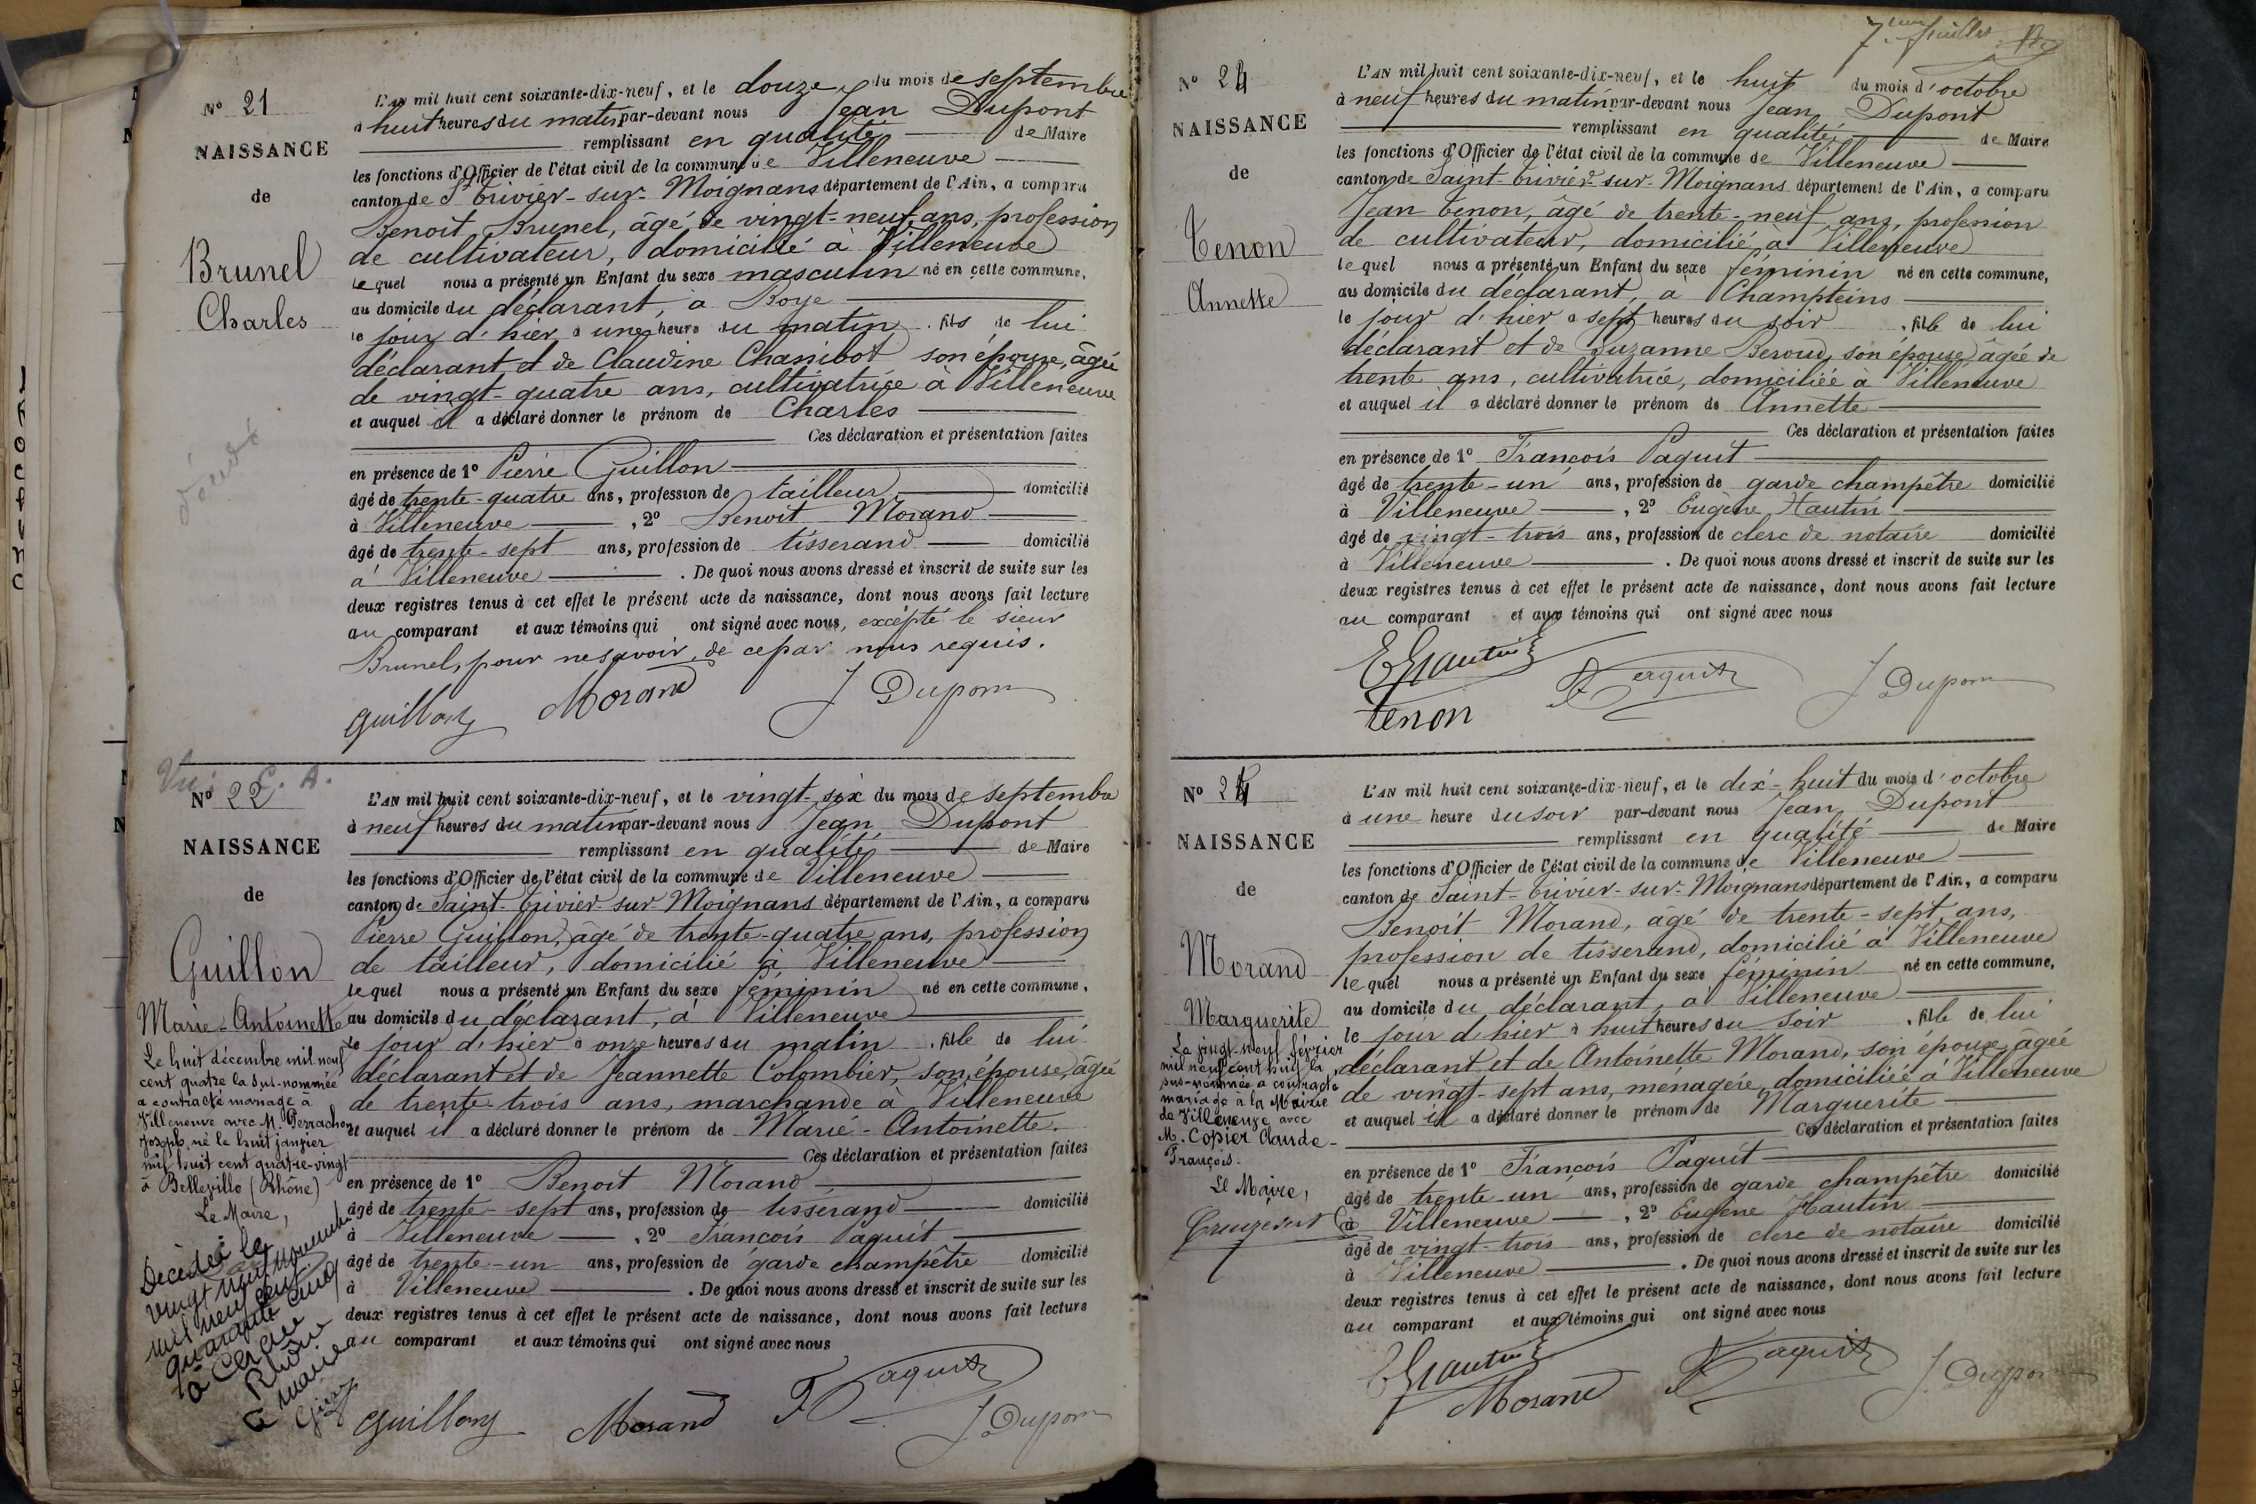 N° 21
NAISSANCE
de
Brunel
Charles
L'AN mil huit cent soixante-dix-neuf, et le douze du mois de septembre
à huit heures du matin par-devant nous Jean Dupont
remplissant en qualité de Maire
les fonctions d'Officier de l'état civil de la commune de Villeneuve
canton de St Trivier-sur-Moignans département de l'Ain, a comparu
Benoit Brunel, âgé de vingt-neuf ans, profession
de cultivateur, domicilié à Villeneuve
lequel nous a présenté un Enfant du sexe masculin né en cette commune,
au domicile du déclarant, à Boye
le jour d'hier à une heure du matin . fils de lui
déclarant et de Claudine Chanibot son épouse, âgée
de vingt-quatre ans, cultivatrice à Villeneuve
et auquel il a déclaré donner le prénom de Charles
Ces déclaration et présentation faites
en présence de 1° Pierre Guillon
âgé de trente-quatre ans, profession de tailleur domicilié
à Villeneuve , 2° Benoit Morand
âgé de trente-sept ans, profession de tisserand domicilié
à Villeneuve . De quoi nous avons dressé et inscrit de suite sur les
deux registres tenus à cet effet le présent acte de naissance, dont nous avons fait lecture
au comparant et aux témoins qui ont signé avec nous, excepté le sieur
Brunel, pour ne savoir, de ce par nous requis.
Guillon Morand J Dupont
Vu
N° 22
NAISSANCE
de
Guillon
Marie-Antoinette
Le huit décembre mil neuf
cent quatre la sus-nommée
a contracté mariage à
Villeneuve avec M. Perrachon
Joseph, né le huit janvier
mil huit cent quatre-vingt
à Belleville (Rhône)
Le Maire,
Décédée le
vingt neuf novembre
mil neuf cent
quarante cinq
à Cercié
Rhône
L'AN mil huit cent soixante-dix-neuf, et le vingt-six du mois de septembre
à neuf heures du matin par-devant nous Jean Dupont
remplissant en qualité de Maire
les fonctions d'Officier de l'état civil de la commune de Villeneuve
canton de Saint-Trivier-sur-Moignans département de l'Ain, a comparu
Pierre Guillon, âgé de trente-quatre ans, profession
de tailleur, domicilié à Villeneuve
lequel nous a présenté un Enfant du sexe féminin né en cette commune,
au domicile du déclarant, à Villeneuve
le jour d'hier à onze heures du matin . fille de lui
déclarant et de Jeannette Colombier, son épouse, âgée
de trente-trois ans, marchande à Villeneuve
et auquel il a déclaré donner le prénom de Marie-Antoinette.
Ces déclaration et présentation faites
en présence de 1° Benoit Morand
âgé de trente-sept ans, profession de tisserand domicilié
à Villeneuve , 2° François Paquit
âgé de trente-un ans, profession de garde champêtre domicilié
à Villeneuve . De quoi nous avons dressé et inscrit de suite sur les
deux registres tenus à cet effet le présent acte de naissance, dont nous avons fait lecture
au comparant et aux témoins qui ont signé avec nous
Guillon Morand F Paquit
J. Dupont
7ème feuillet
NAISSANCE
de
Tenon
Annette
L'AN mil huit cent soixante-dix-neuf, et le huit du mois d'octobre
à neuf heures du matin par-devant nous Jean Dupont
remplissant en qualité de Maire
les fonctions d'Officier de l'état civil de la commune de Villeneuve
canton de Saint-Trivier-sur-Moignans département de l'Ain, a comparu
Jean Tenon, âgé de trente-neuf ans, profession
de cultivateur, domicilié à Villeneuve
lequel nous a présenté un Enfant du sexe féminin né en cette commune,
au domicile du déclarant, à Champteins
le jour d'hier à sept heures du soir . fille de lui
déclarant et de Suzanne Beroud, son épouse, âgée de
trente ans, cultivatrice, domiciliée à Villeneuve
et auquel il a déclaré donner le prénom de Annette
Ces déclaration et présentation faites
en présence de 1° François Paquit
âgé de trente-un ans, profession de garde champêtre domicilié
à Villeneuve , 2° Eugène Hautin
âgé de vingt-trois ans, profession de clerc de notaire domicilié
à Villeneuve . De quoi nous avons dressé et inscrit de suite sur les
deux registres tenus à cet effet le présent acte de naissance, dont nous avons fait lecture
au comparant et aux témoins qui ont signé avec nous
E Hautin F Paquit J. Dupont
tenon
N° 24
NAISSANCE
de
Morand
Marguerite
Le vingt-neuf février
mil neuf cent huit la
sus-nommée a contracté
mariage à la Mairie
de Villeneuve avec
M. Copier Claude-
François.
Le Maire,
L'AN mil huit cent soixante-dix-neuf, et le dix-huit du mois d'octobre
à une heure du soir par-devant nous Jean Dupont
remplissant en qualité de Maire
les fonctions d'Officier de l'état civil de la commune de Villeneuve
canton de Saint-Trivier-sur-Moignans département de l'Ain, a comparu
Benoit Morand, âgé de trente-sept ans,
profession de tisserand, domicilié à Villeneuve
lequel nous a présenté un Enfant du sexe féminin né en cette commune,
au domicile du déclarant, à Villeneuve
le jour d'hier à huit heures du soir . fille de lui
déclarant et de Antoinette Morand, son épouse, âgée
de vingt-sept ans, ménagère, domiciliée à Villeneuve
et auquel il a déclaré donner le prénom de Marguerite
Ces déclaration et présentation faites
en présence de 1° François Paquit
âgé de trente-un ans, profession de garde champêtre domicilié
à Villeneuve , 2° Eugène Hautin
âgé de vingt-trois ans, profession de clerc de notaire domicilié
à Villeneuve . De quoi nous avons dressé et inscrit de suite sur les
deux registres tenus à cet effet le présent acte de naissance, dont nous avons fait lecture
au comparant et aux témoins qui ont signé avec nous
E Hautin F Paquit J. Dupont
Morand